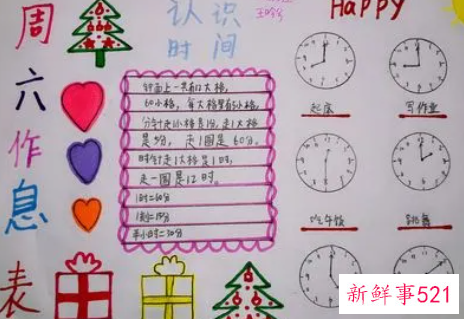 周六作息表
认识
时间
Happy
钟面上一共有12大格,
60小格,每大格里有5小格,
分针走1小格是1分,走1大格
是5分,走1圈是60分。
时针走1大格是1时,
走一圈是12时。
1时=60分
1刻=15分
半小时=30分
起床
写作业
吃午饭
跳舞
新鲜事521